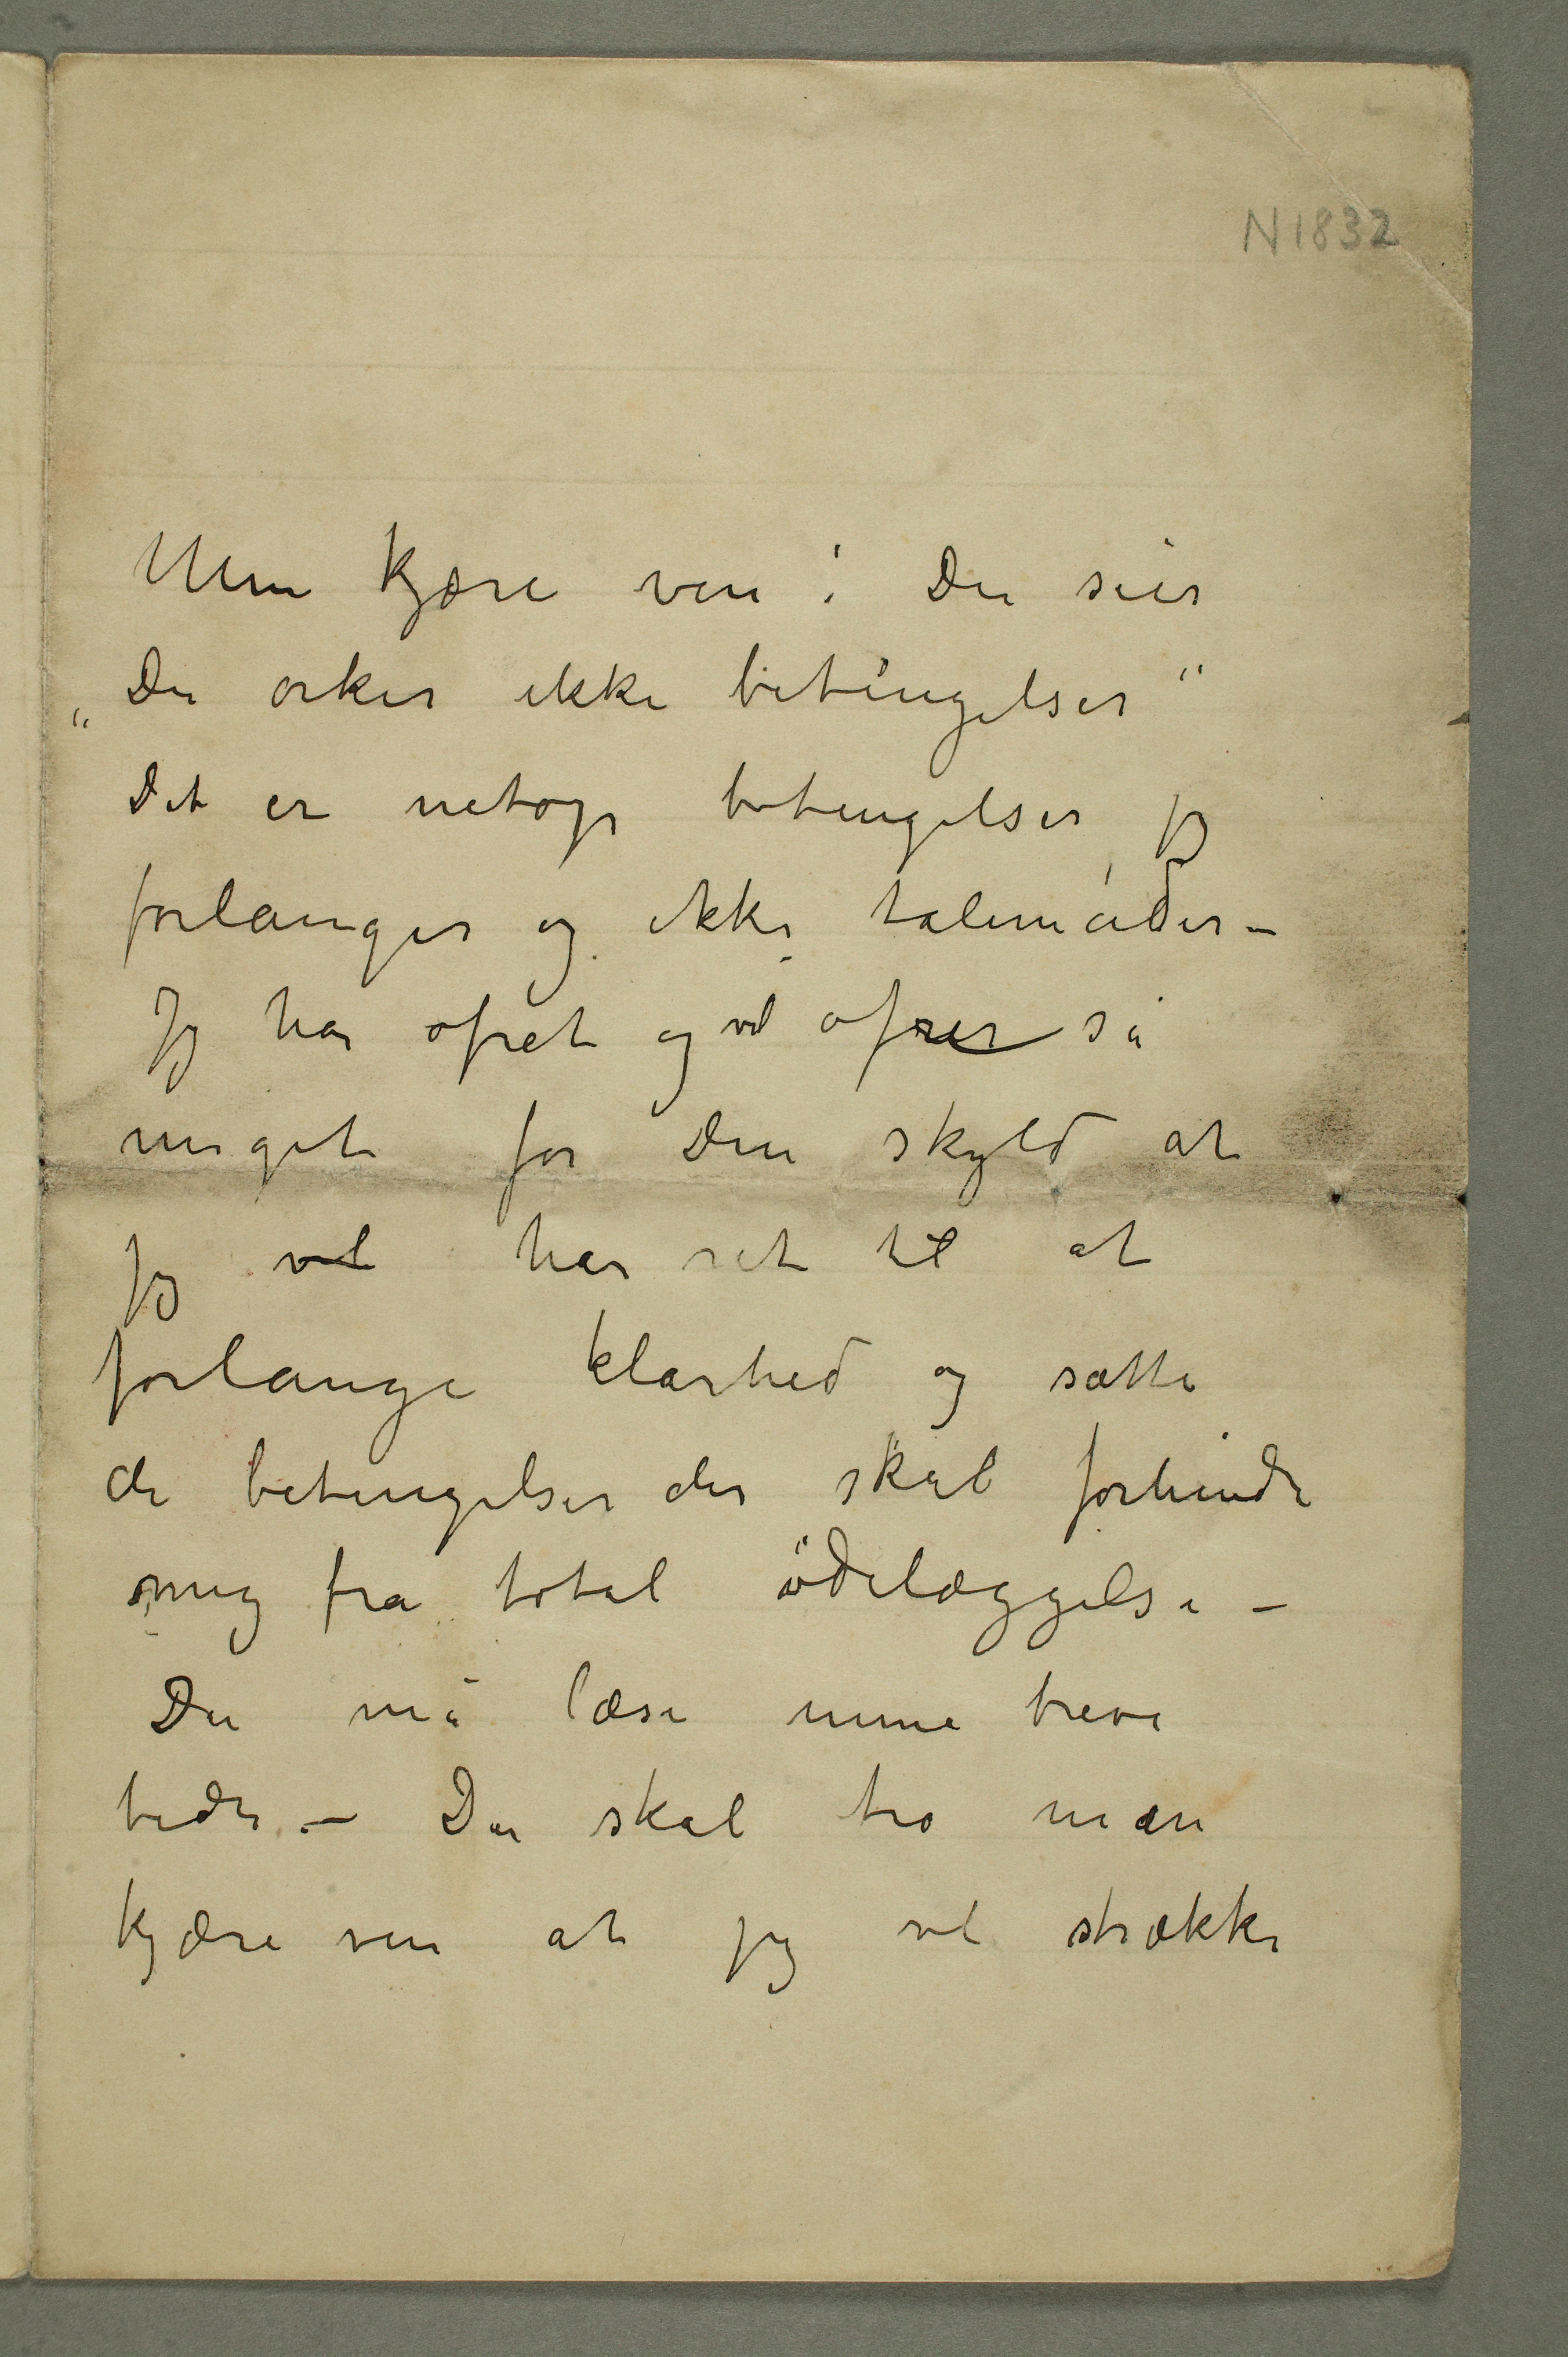 N 1832
Min kjære ven! Du siér
„Du orker ikke betingelser“
Det er netop betingelser jeg
forlanger og ikke talemåder –
Jeg har ofret og vil ofrer så
meget for Din skyld at
jeg vil har ret til at
forlange klarhed og sætte
de betingelser der skal forhindre
mig fra total ödelæggelse –
Du må læse mine breve
bedre. – Du skal tro min
kjære ven at jeg vil strække